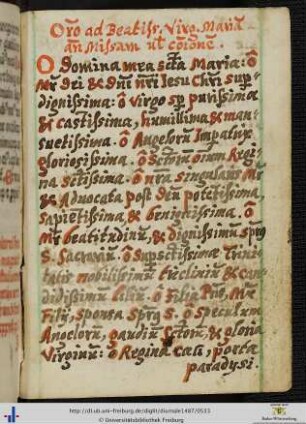 Oro ad Beatiss. Virg. Mariã
an Missam ul coione.
O domina mea scta Maria: ô
Mr dei & dnĩ nrĩ Iesu Chrĩ sup
dignissima: ô virgo sp purissima
& castissima, humillima & man
suetissima. ô Angelorũ Impatrix
gloriosissima. ô Sctorũ oium Regi
na sctissima. ô nra singularis Mr
& Advocata post deũ potetissima,
sapietissima, & benignissima. ô
Mr beatitudinũ, & dignissimũ
S. Sacrariũ. ô supsctissimæ Trini
tatis nobilissimũ tricliniũ & can
didissimũ liliũ. ô Filia Pris, Mr
Filij, sponsa Sprs S. ô speculum
Angelorũ, gaudiũ Sctorũ, & gloria
Virginũ: ô Regina cæli, porta
paradysi.
http://dl.ub.uni-freiburg.de/diglit/diurnale1487/0533
© Universitätsbibliothek Freiburg
Baden-Württemberg